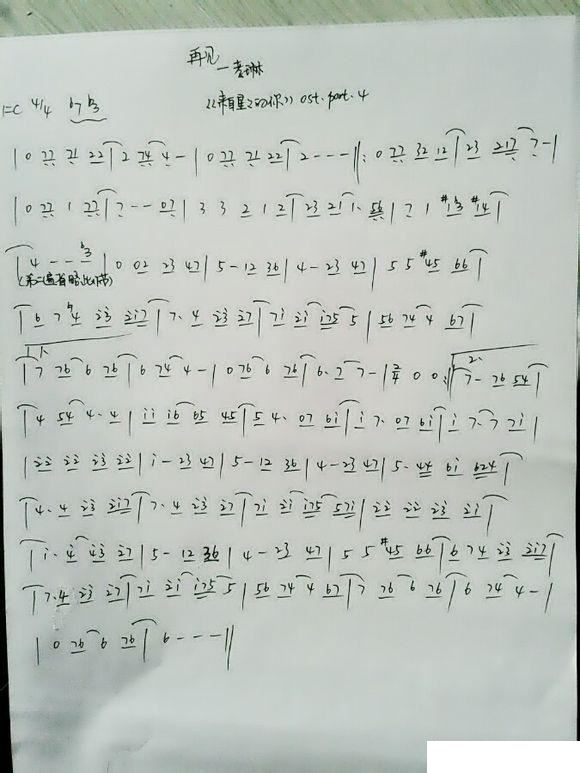 再见
— 李琳
《来自星星的你》 ost. part. 4
1=C 4/4 b7 b3
| 0 77 71 22 | 2 74 4 - | 0 77 71 22 | 2 - - - ‖: 0 77 32 12 | 23 217 7 - |
| 0 77 1 77 | 7 - - - 07 | 3 3 2 1 2 | 23 21 1. 56 | 7 1 #1 3 #14 |
| 4 - - b3 | 0 02 23 47 | 5 - 12 36 | 4 - 23 47 | 5 5 #45 66 |
(第二遍省略此小节)
| 6 7 4 23 217 | 7. 4 23 27 | 71 21 175 5 | 56 74 4 67 |
1.
| 7 76 6 76 | 6 74 4 - | 0 76 6 76 | 6. 7 7 - | 2/4 0 0 :‖ 2. 7 - 76 54 |
| 4 54 4. 4 | 11 16 65 45 | 5 4. 07 61 | 1 7. 07 61 | 1 7. 7 71 |
| 22 22 23 22 | 1 - 23 47 | 5 - 12 36 | 4 - 23 47 | 5. 44 61 624 |
| 4. 4 23 217 | 7. 4 23 27 | 71 21 175 571 | 22 22 23 21 |
| 1. 4 43 27 | 5 - 12 36 | 4 - 23 47 | 5 5 #45 66 | 6 74 23 217 |
| 7. 4 23 27 | 71 21 175 5 | 56 74 4 67 | 7 76 6 76 | 6 74 4 - |
| 0 76 6 76 | 6 - - - ‖